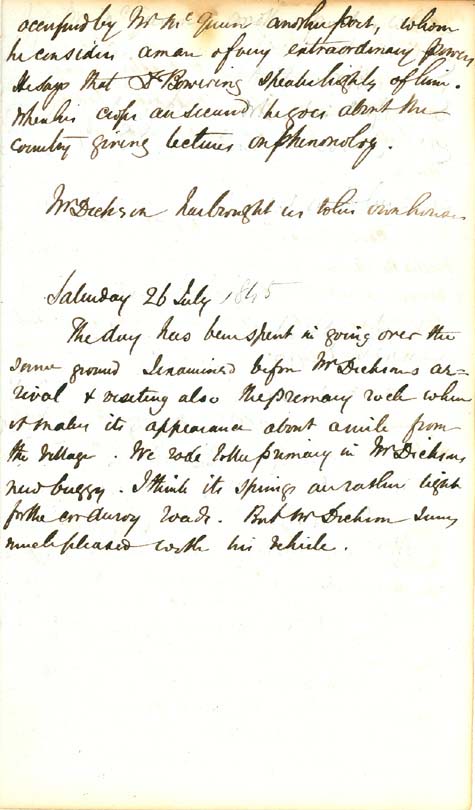 occupied by Mr McQueen another poet, whom
he considers a man of very extraordinary powers
He says that Dr Bowring speaks highly of him.
When his crops are secured he goes about the
country giving lectures on phrenology.
Mr Dickson has brought us to his own house
Saturday 26 July 1845
The day has been spent in going over the
same ground I examined before Mr Dickson's ar=
rival & visiting also the primary rock where
it makes its appearance about a mile from
the village. We rode to the primary in Mr Dicksons
new buggy. I think its springs are rather light
for the corduroy roads. But Mr Dickson seems
much pleased with his vehicle.